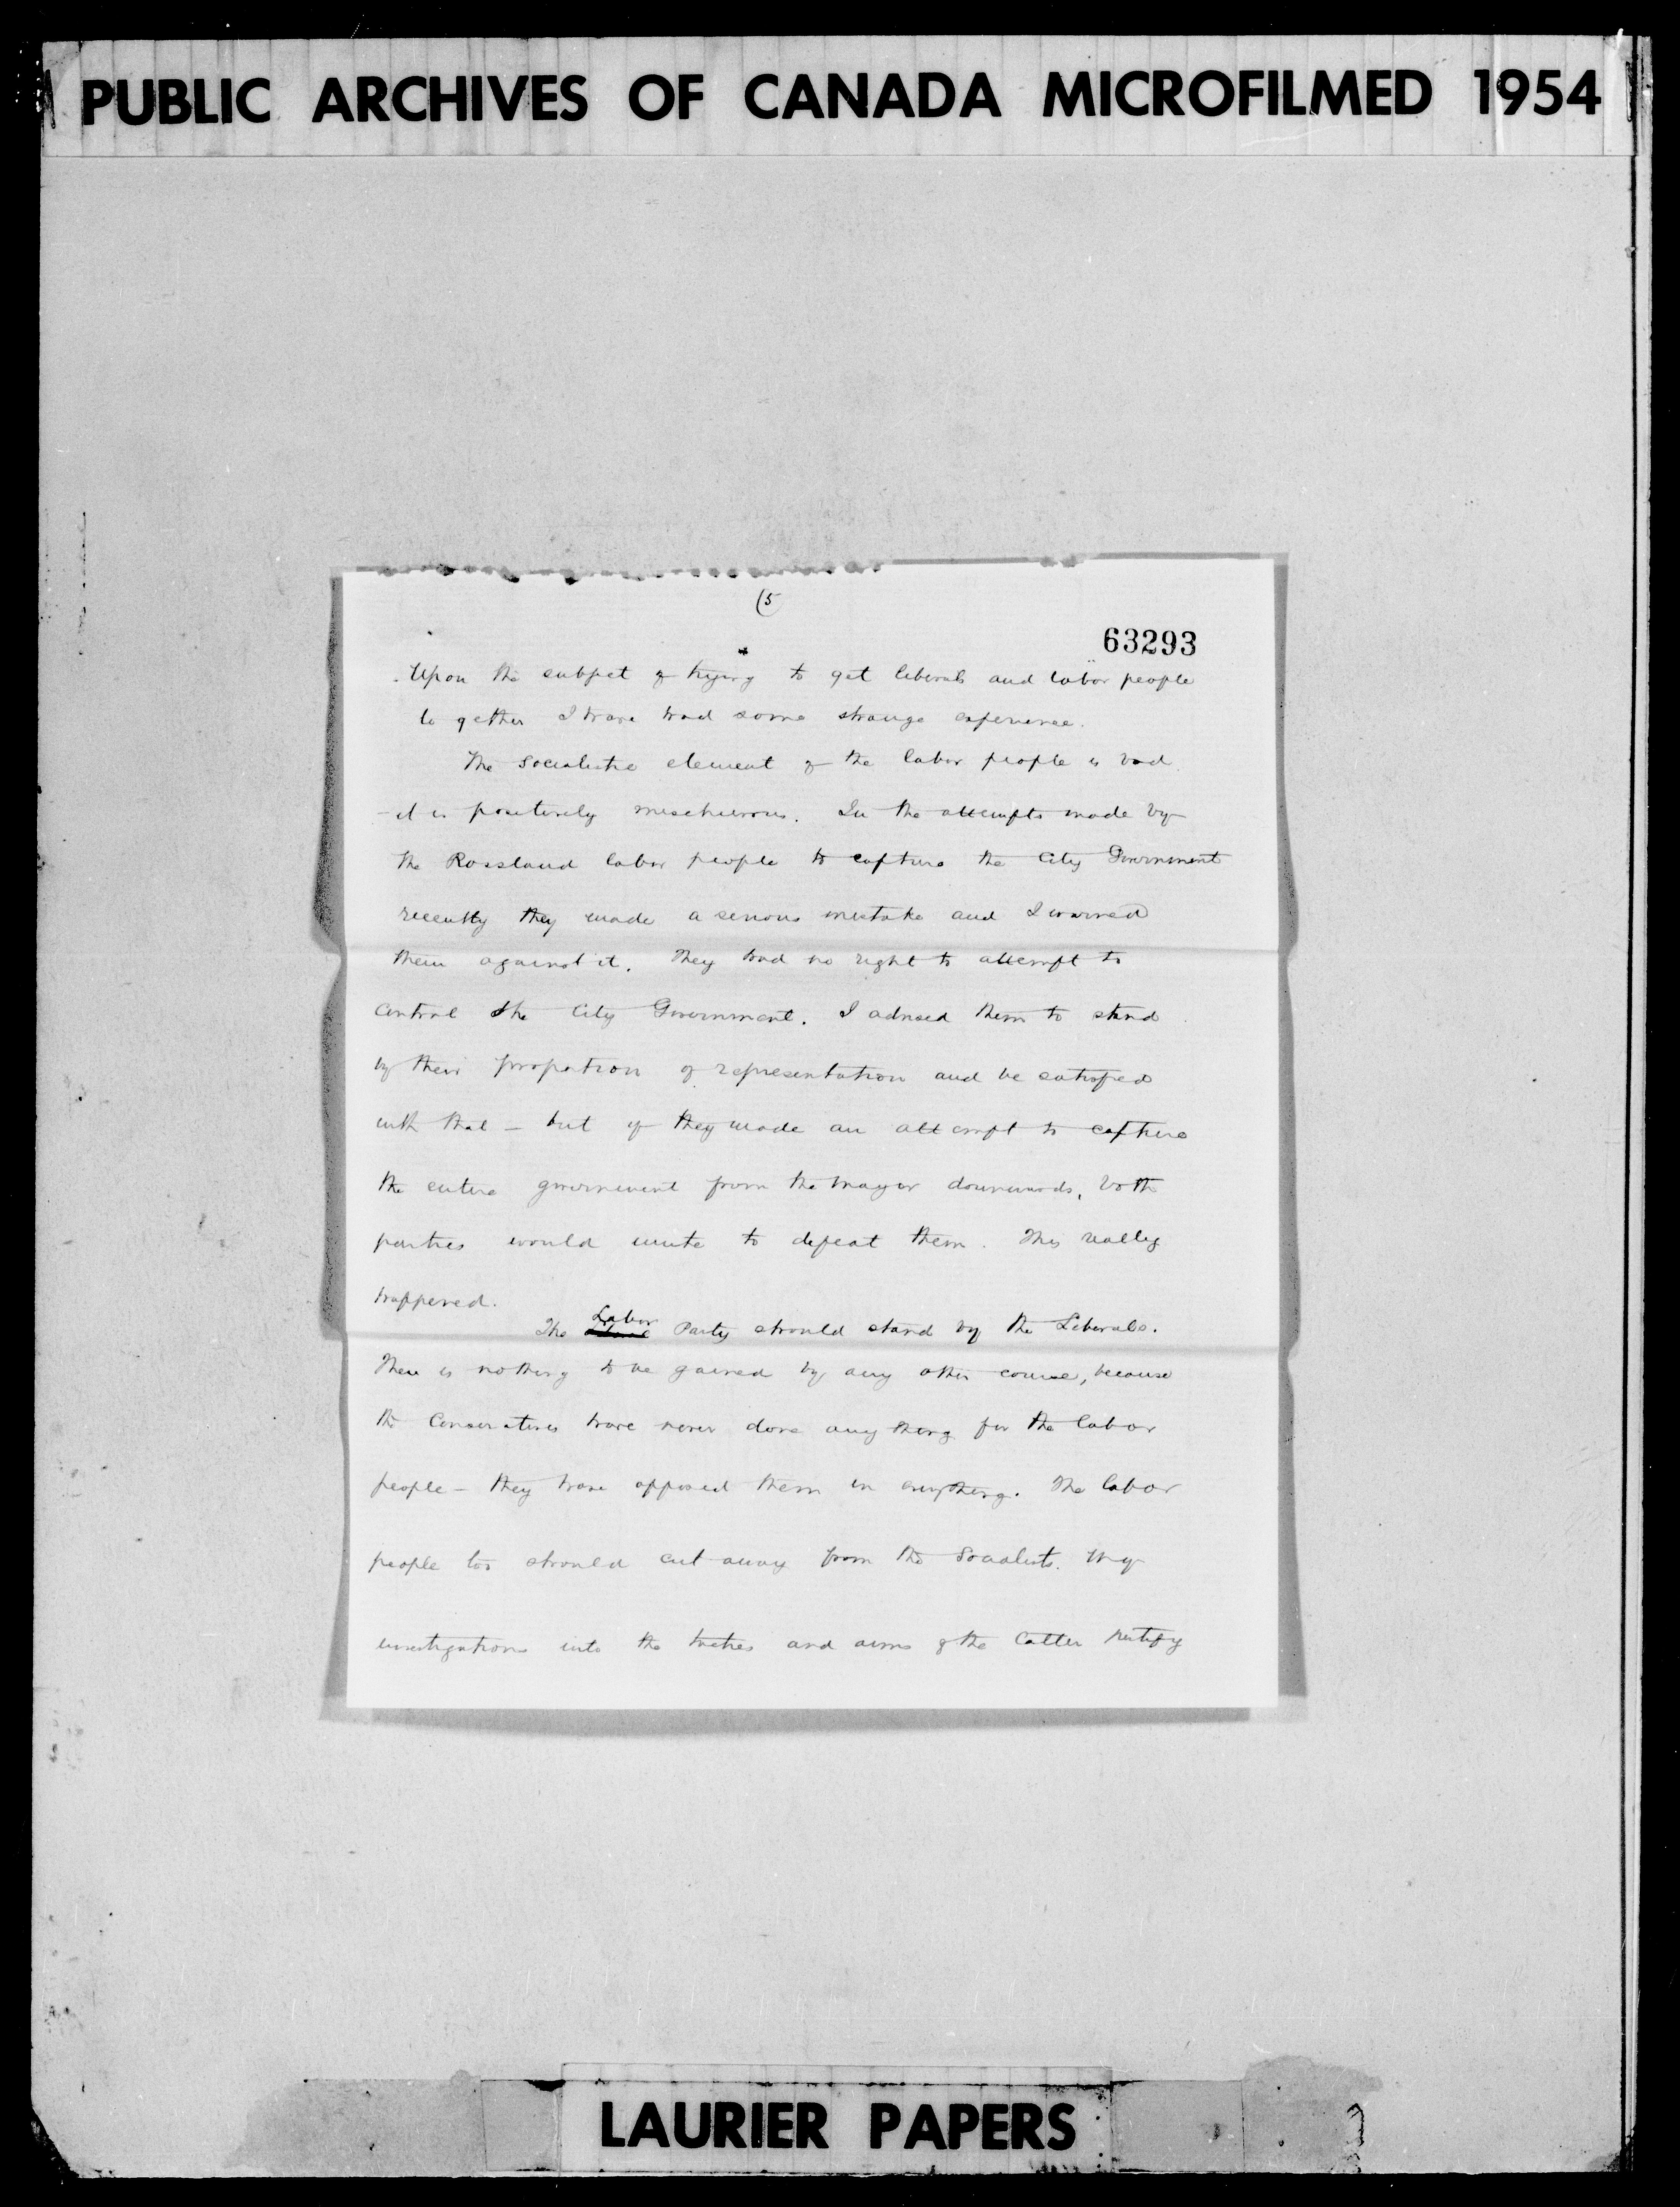 PUBLIC ARCHIVES OF CANADA MICROFILMED 1954
(5
63293
Upon the subject of trying to get liberals and labor people
to gether I have had some strange experience.
The Socialistic element of the labor people is bad
- it is positively mischievous. In the attempts made by
the Rossland labor people to capture the City Government
recently they made a serious mistake and I warned
them against it. They had no right to attempt to
control the City Government. I advised them to stand
by their proportion of representation and be satisfied
with that - but if they made an attempt to capture
the entire government from the mayor downwards, both
parties would unite to defeat them. This really
happened.
The Labor Party should stand by the Liberals.
There is nothing to be gained by any other course, because
the Conservatives have never done any thing for the labor
people - they have opposed them in everything. The labor
people too should cut away from the Socialists. My
investigations into the tactics and aims of the latter justify
LAURIER PAPERS